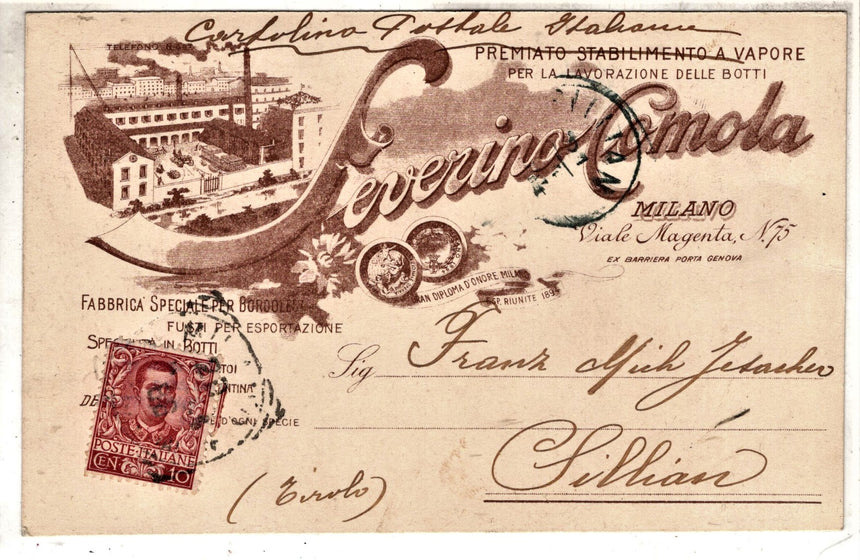 Cartolina Postale Italiana
TELEFONO N.
PREMIATO STABILIMENTO A VAPORE
PER LA LAVORAZIONE DELLE BOTTI
Severino Comola
MILANO
Viale Magenta, N. 75
EX BARRIERA PORTA GENOVA
GRAN DIPLOMA D'ONORE MILANO
ESP. RIUNITE 189
FABBRICA SPECIALE PER BORDOLESI
FUSTI PER ESPORTAZIONE
IN BOTTI
D'OGNI SPECIE
Sig Franz Mich
Sillian
(Tirolo)
POSTE ITALIANE
CEN. 10